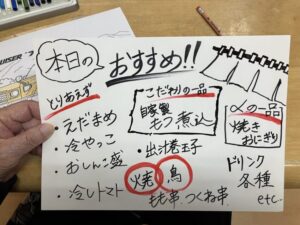 本日の
おすすめ!!
とりあえず
・えだまめ
・冷やっこ
・おしんこ盛
・冷しトマト
こだわりの一品
自家製
もつ煮込
・出汁巻玉子
焼鳥
もも串、つくね串
〆の一品
焼き
おにぎり
ドリンク
各種
etc…